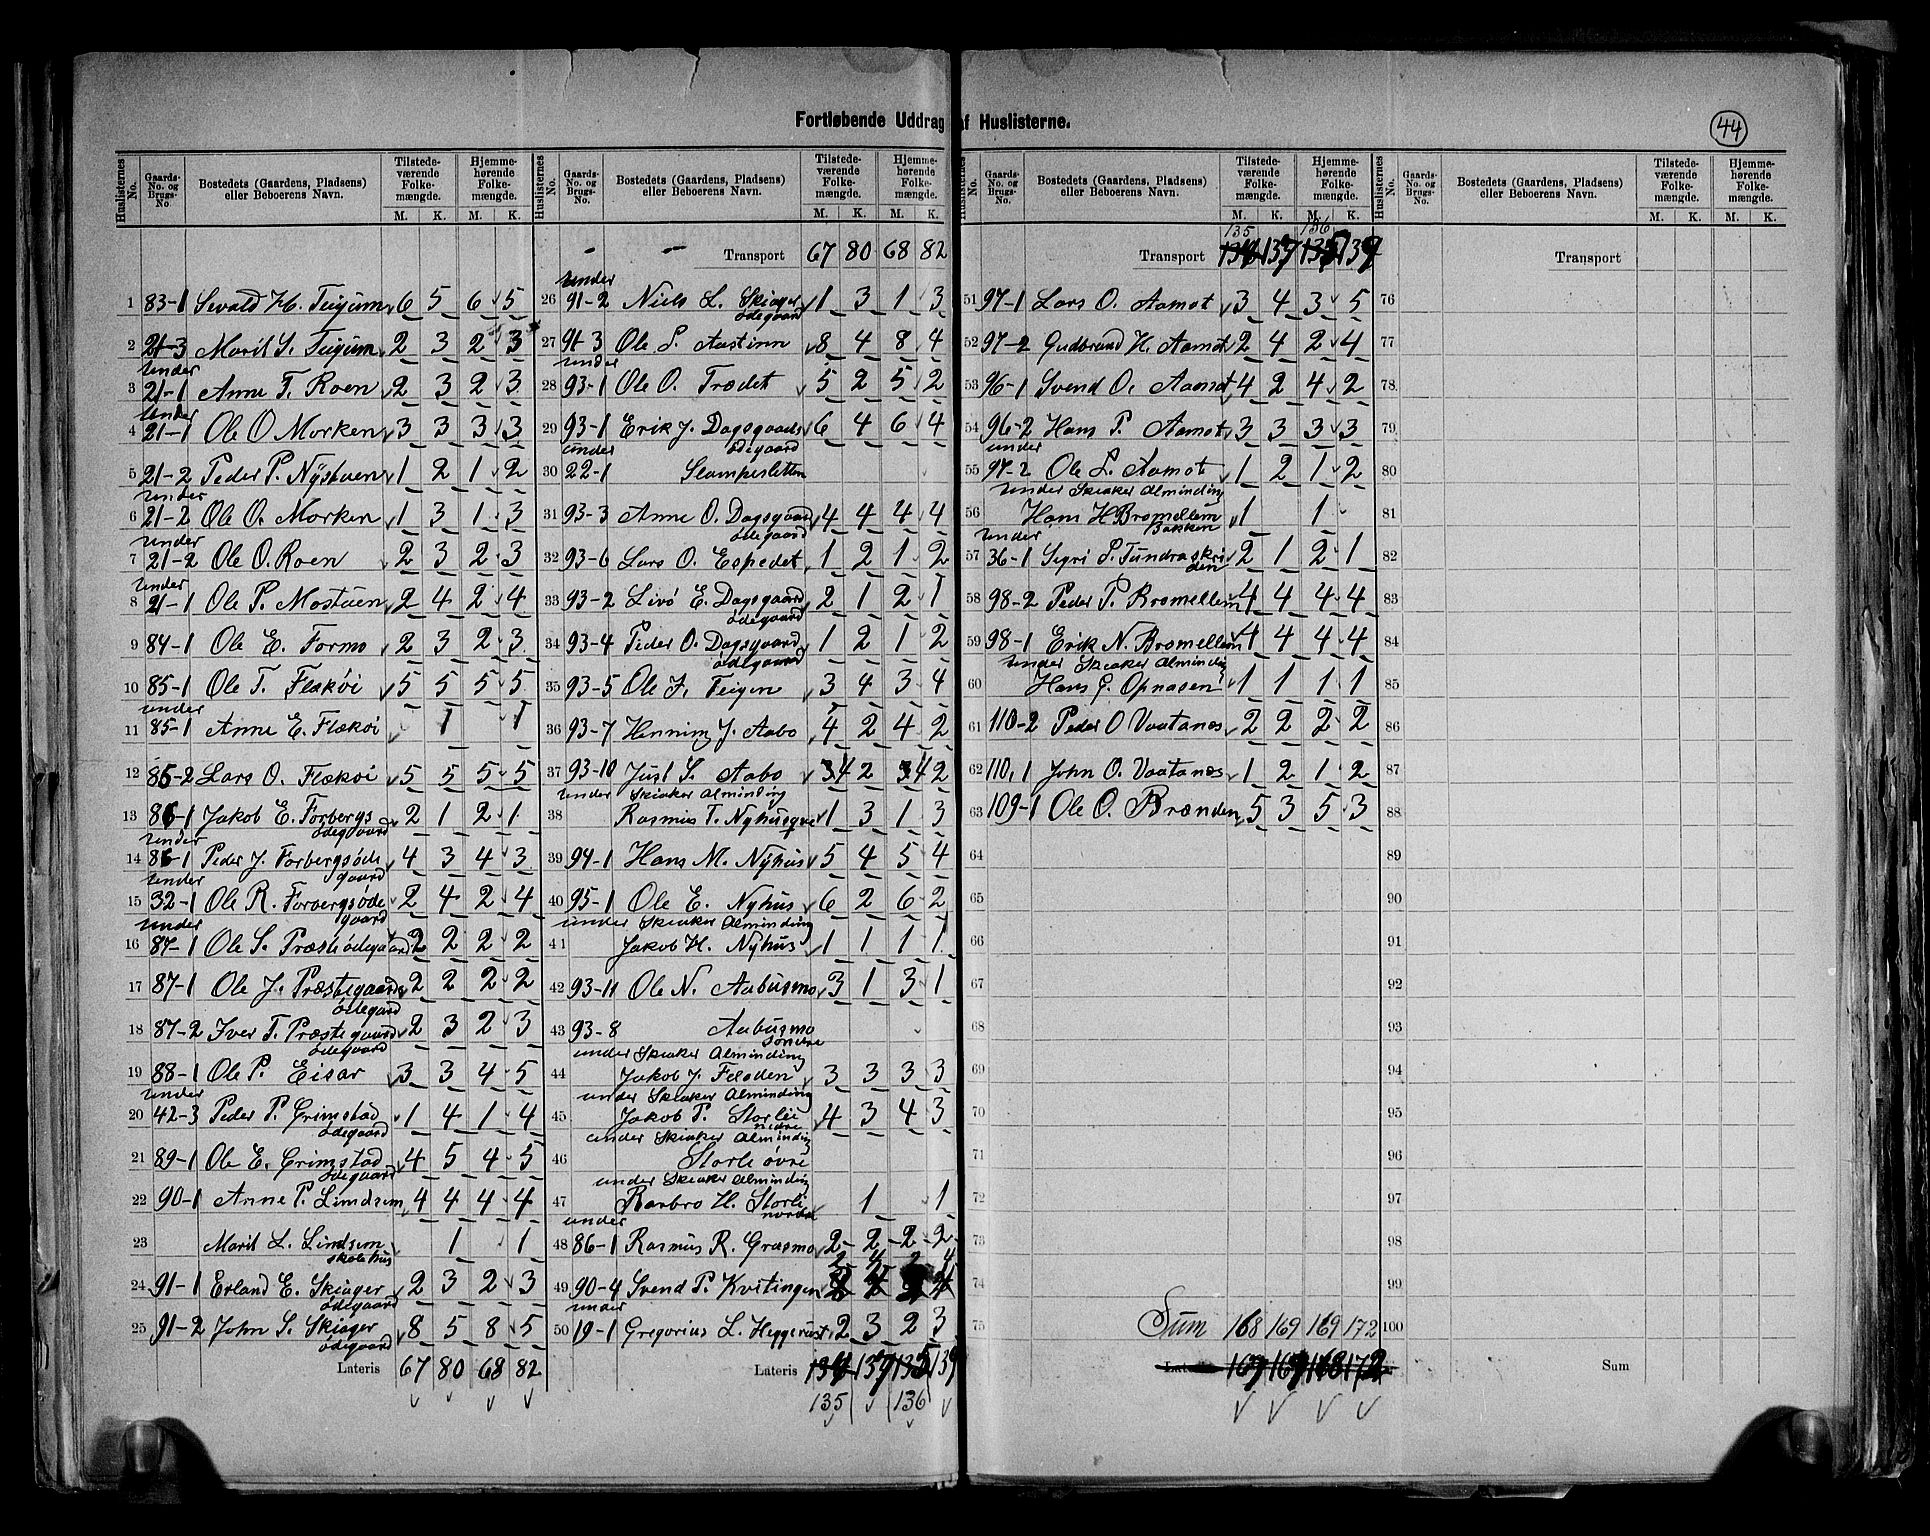 Fortløbende Uddrag af Huslisterne.
44
Huslisternes No.
Gaards-No. og Brugs-No.
Bostedets (Gaardens, Pladsens) eller Beboerens Navn.
Tilstede-værende Folke-mængde.
Hjemme-hørende Folke-mængde.
M. K. M. K.
1 83-1 Sevald H. Teigum 6 5 6 5
2 21-3 Marit S. Teigum 2 3 2 3
under
3 21-1 Anne T. Roen 2 3 2 3
under
4 21-1 Ole O Morken 3 3 3 3
5 21-2 Peder P. Nystuen 1 2 1 2
under
6 21-2 Ole O. Morken 1 3 1 3
under
7 21-2 Ole O. Roen 2 3 2 3
under
8 21-1 Ole P. Mostuen 2 4 2 4
9 84-1 Ole E. Formo 2 3 2 3
10 85-1 Ole T. Flækøi 5 5 5 5
under
11 85-1 Anne E. Flækøi 1 1
12 85-2 Lars O. Flækøi 5 5 5 5
13 86-1 Jakob E. Forbergs ødegaard 2 1 2 1
under
14 86-1 Peder J. Forbergsøde gaard 4 3 4 3
under
15 32-1 Ole R. Forbergsøde gaard 2 4 2 4
under
16 87-1 Ole S. Præstødegaard 2 2 2 2
17 87-1 Ole J. Præstegaards ødegaard 2 2 2 2
18 87-2 Iver T. Præstegaards ødegaard 2 3 2 3
19 88-1 Ole P. Eisar 3 3 4 5
under
20 42-3 Peder P. Grimstad ødegaard 1 4 1 4
21 89-1 Ole E. Grimstad ødegaard 4 5 4 5
22 90-1 Anne P. Lindsem 4 4 4 4
23 Marit L. Lindsem skolehus 1 1
24 91-1 Erland E. Skiager ødegaard 2 3 2 3
25 91-2 John S. Skiager ødegaard 8 5 8 5
Lateris 67 80 68 82
Huslisternes No.
Gaards-No. og Brugs-No.
Bostedets (Gaardens, Pladsens) eller Beboerens Navn.
Tilstede-værende Folke-mængde.
Hjemme-hørende Folke-mængde.
M. K. M. K.
Transport 67 80 68 82
under
26 91-2 Niels L. Skiager ødegaard 1 3 1 3
27 91-3 Ole S. Aastinn 8 4 8 4
under
28 93-1 Ole O. Trædet 5 2 5 2
29 93-1 Erik J. Dagsgaards ødegaard 6 4 6 4
under
30 22-1 Slampesletten
31 93-3 Anne O. Dagsgaard ødegaard 4 4 4 4
32 93-6 Lars O. Espedet 1 2 1 2
33 93-2 Livø E. Dagsgaard ødegaard 2 1 2 1
34 93-4 Peder O. Dagsgaard ødegaard 1 2 1 2
35 93-5 Ole J. Teigen 3 4 3 4
36 93-7 Henning J. Aabo 4 2 4 2
37 93-10 Just S. Aabo 4 2 4 2
under Skiaker Alminding
38 Rasmus T. Nyhusqve 1 3 1 3
39 94-1 Hans M. Nyhus 5 4 5 4
40 95-1 Ole E. Nyhus 6 2 6 2
under Skiaker Alminding
41 Jakob H. Nyhus 1 1 1 1
42 93-11 Ole N. Aabusmo 3 1 3 1
43 93-8 Aabusmo søndre
under Skiaker Alminding
44 Jakob J. Fladen 3 3 3 3
under Skiaker Alminding
45 Jakob P. Storlie nedre 4 3 4 3
under Skiaker Alminding
46 Storli øvre
under Skiaker Alminding
47 Barbro H. Storli nordre 1 1
under
48 86-1 Rasmus R. Græsmo 2 2 2 2
49 90-4 Svend P. Kvitingen 2 4 2 4
under
50 19-1 Gregorius L. Heggerust 2 3 2 3
Lateris 134 137 135 139
135 136
Huslisternes No.
Gaards-No. og Brugs-No.
Bostedets (Gaardens, Pladsens) eller Beboerens Navn.
Tilstede-værende Folke-mængde.
Hjemme-hørende Folke-mængde.
M. K. M. K.
135 136
Transport 134 137 135 139
51 97-1 Lars O. Aamot 3 4 3 5
52 97-2 Gudbrand H. Aamot 2 4 2 4
53 96-1 Svend O. Aamot 4 2 4 2
54 96-2 Hans P. Aamot 3 3 3 3
under
55 97-2 Ole L. Aamot 1 2 1 2
under Skiaker Alminding
56 Hans H Bromellem Bakken 1 1
under
57 36-1 Sigri P. Tundraskriden 2 1 2 1
58 98-2 Peder P. Bromellem 4 4 4 4
59 98-1 Erik N. Bromellem 4 4 4 4
under Skiaker Alminding
60 Hans G. Opnasen 1 1 1 1
61 110-2 Peder O Vaatanes 2 2 2 2
62 110,1 John O. Vaatanes 1 2 1 2
63 109-1 Ole O. Brænden 5 3 5 3
64
65
66
67
68
69
70
71
72
73
74
75 Sum 168 169 169 172
Lateris 167 169 168 172
Huslisternes No.
Gaards-No. og Brugs-No.
Bostedets (Gaardens, Pladsens) eller Beboerens Navn.
Tilstede-værende Folke-mængde.
Hjemme-hørende Folke-mængde.
M. K. M. K.
Transport
76
77
78
79
80
81
82
83
84
85
86
87
88
89
90
91
92
93
94
95
96
97
98
99
100
Sum